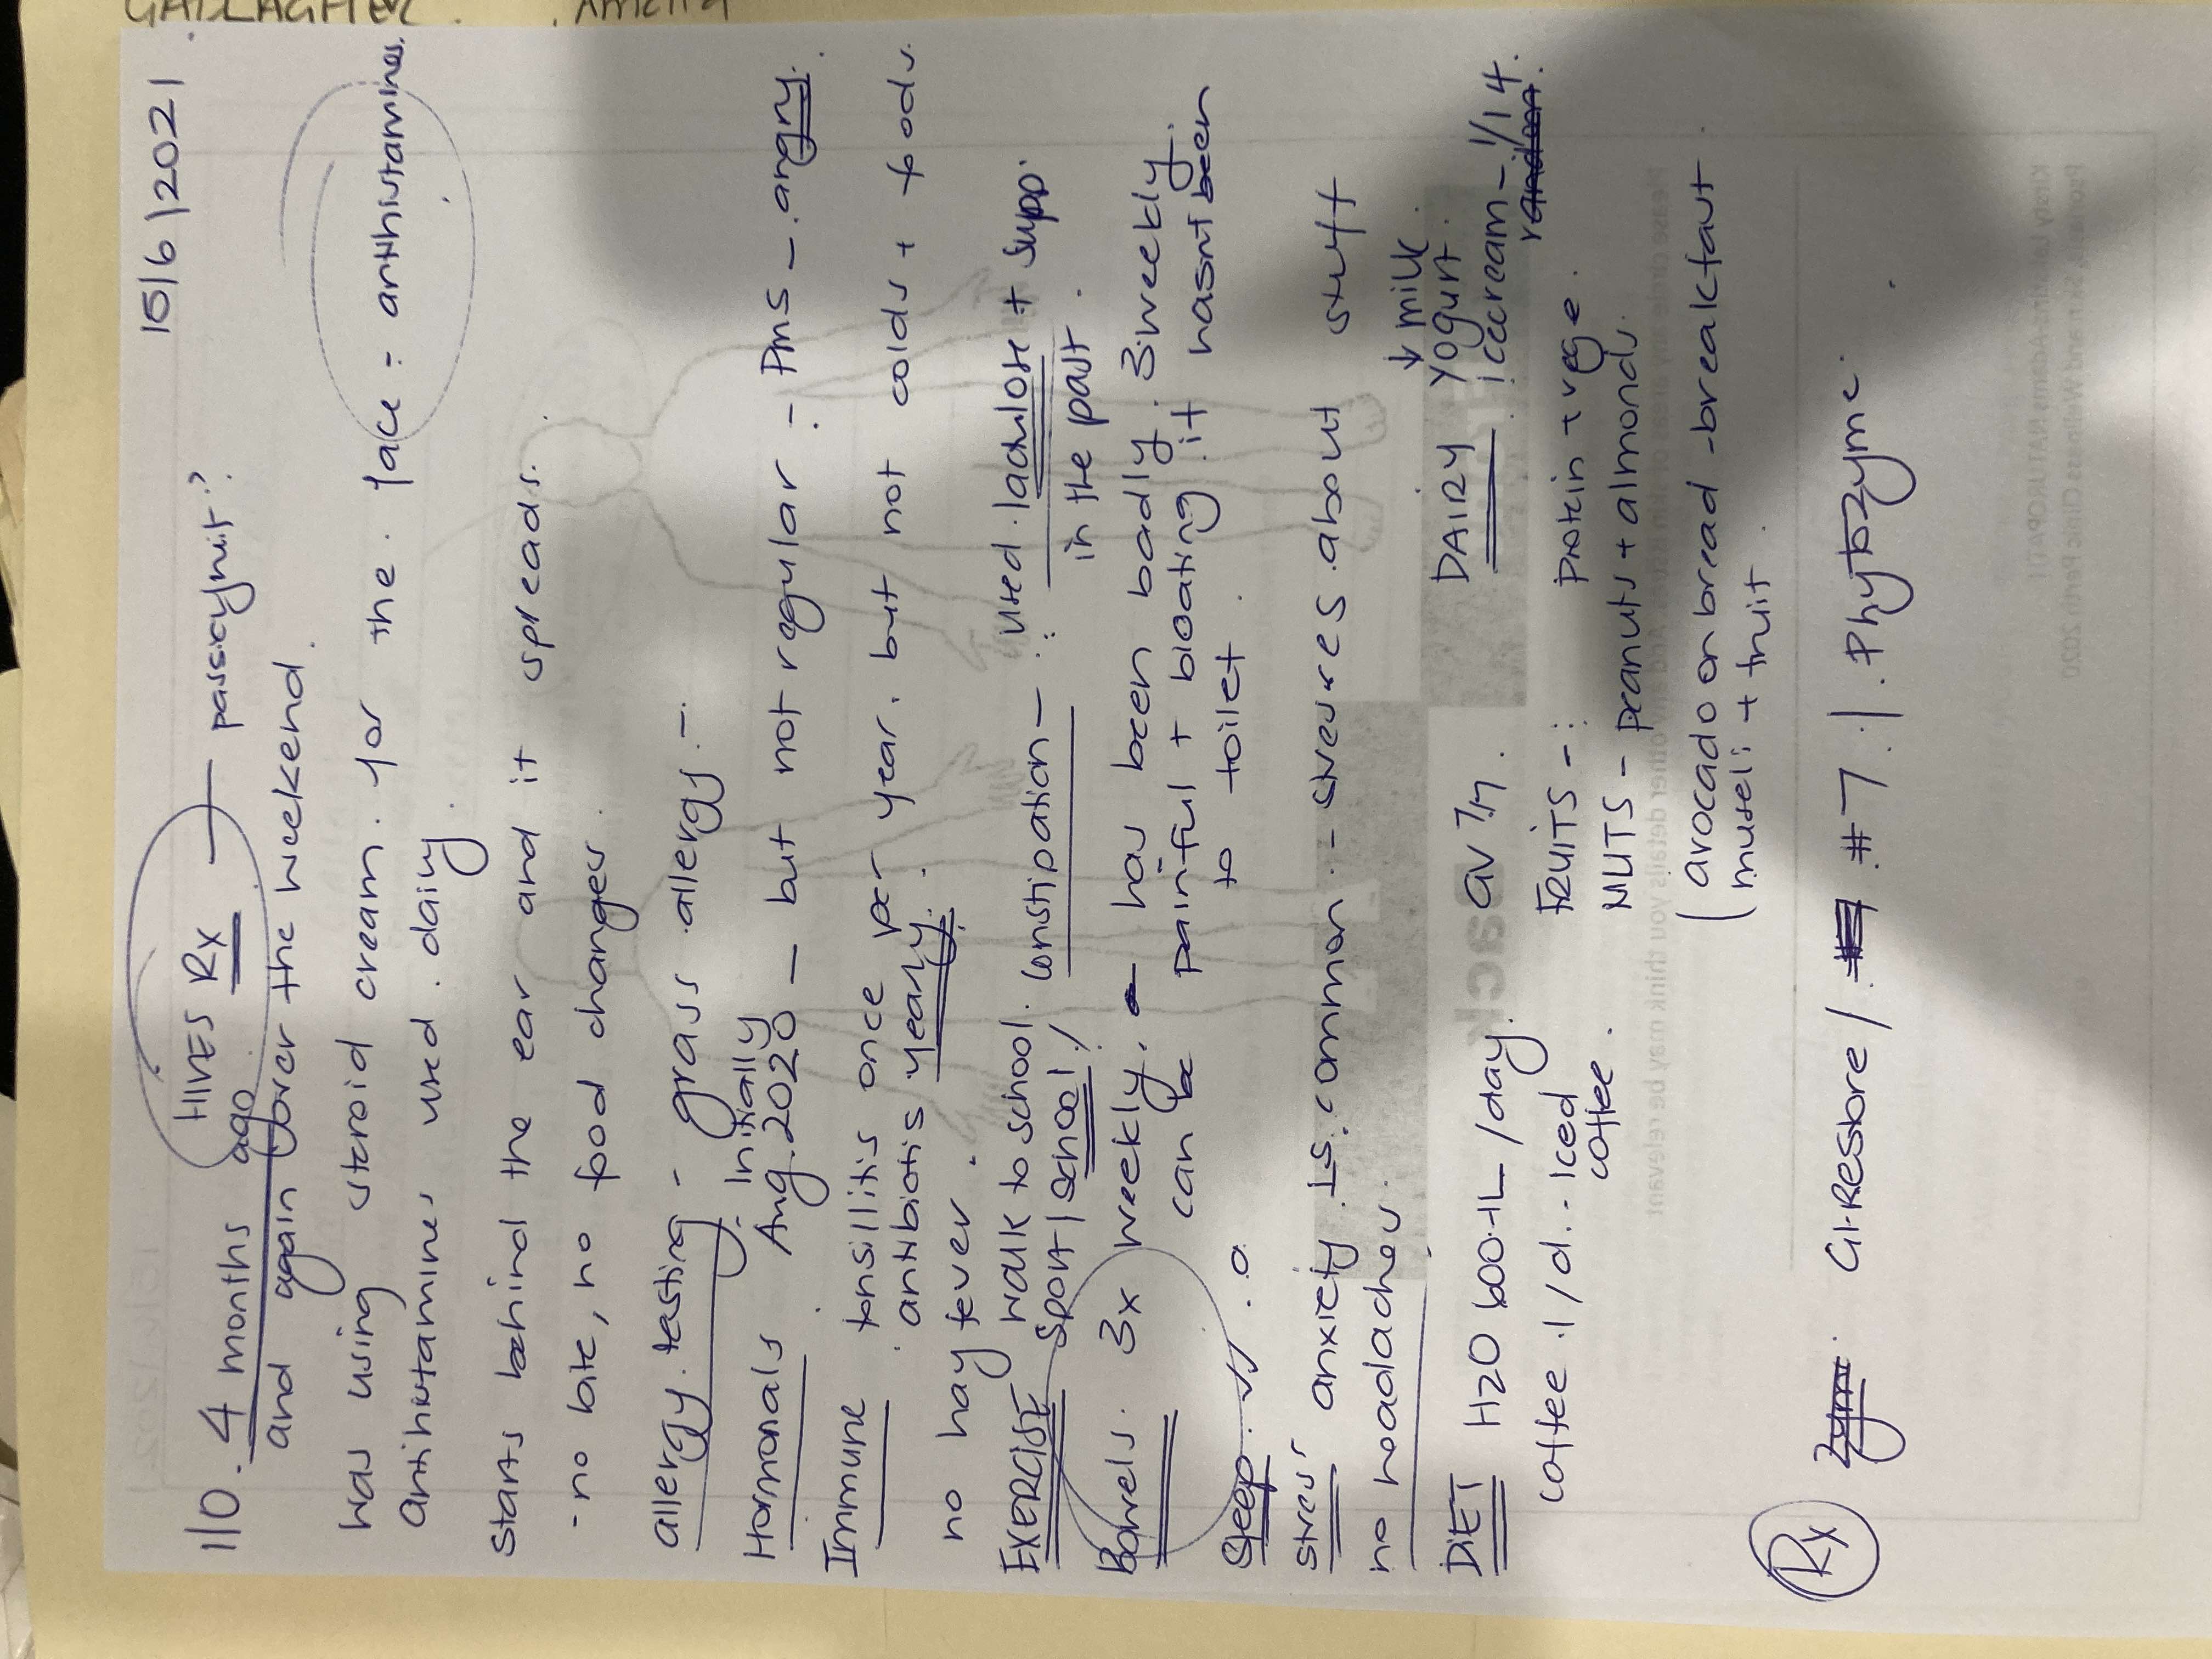 GALLAGHER Amelia
15/6/2021
1/0. 4 months ago HIVES Rx — passionfruit?
and again over the weekend.
was using steroid cream. for the face = antihistamines.
Antihistamines used daily.
starts behind the ear and it spreads.
- no bite, no food changes.
allergy testing - grass allergy -
Hormonals Initially Aug. 2020 — but not regular - PMS - angry.
Immune tonsillitis once per year, but not colds +
antibiotis yearly.
no hay fever.
EXERCISE walk to school.
sport / school /
constipation - used lactulose + supp.
in the past.
Bowels. 3x weekly. - has been badly 3weekly.
can be painful + bloating if hasnt been
to toilet.
Sleep
stress anxiety is common - stresses about stuff
no headaches.
DIET H2O 600-1L /day. av 7/7.
DAIRY ↓ milk
yogurt.
icecream - 1/14.
coffee 1/d. - iced
coffee.
FRUITS - protein + vege.
NUTS - peanuts + almonds.
(avocado on bread - breakfast
museli + fruit.
Rx GI-Restore / #7 / Phytozyme.
Back
ease circle any areas of skin
other details you think may be relevant
Kirsty NATUROPATH
Skin and Wellness Clinic Perth 2020